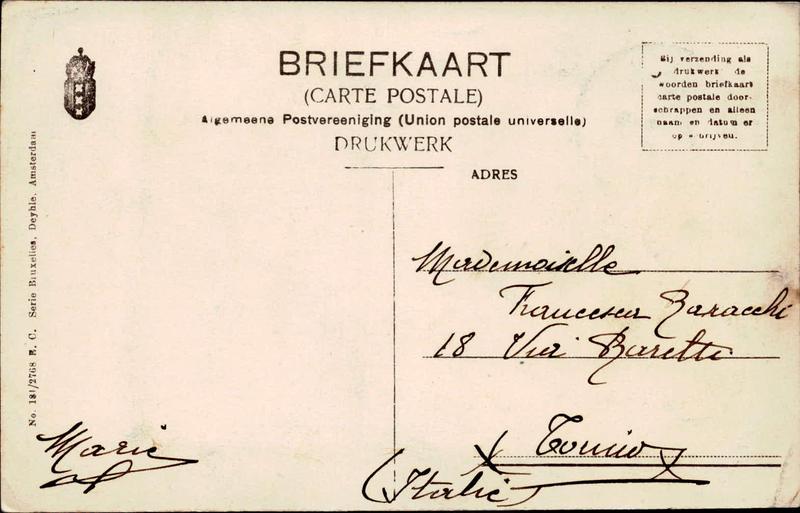 BRIEFKAART
(CARTE POSTALE)
Algemeene Postvereeniging (Union postale universelle)
DRUKWERK
Bij verzending als
drukwerk de
woorden briefkaart
carte postale door-
schrappen en alleen
naam en datum er
op schrijven.
ADRES
Mademoiselle
Francesca Baracchi
18 Via Baretti
Torino
(Italie)
Marie
No. 181/2768 E. C. Serie Bruxelles, Deyhle, Amsterdam